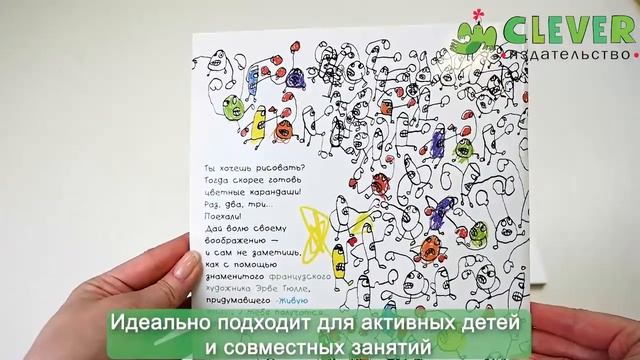 CLEVER
издательство
Ты хочешь рисовать?
Тогда скорее готовь
цветные карандаши!
Раз, два, три...
Поехали!
Дай волю своему
воображению —
и сам не заметишь,
как с помощью
знаменитого французского
художника Эрве Тюлле,
придумавшего «Живую
Идеально подходит для активных детей
и совместных занятий